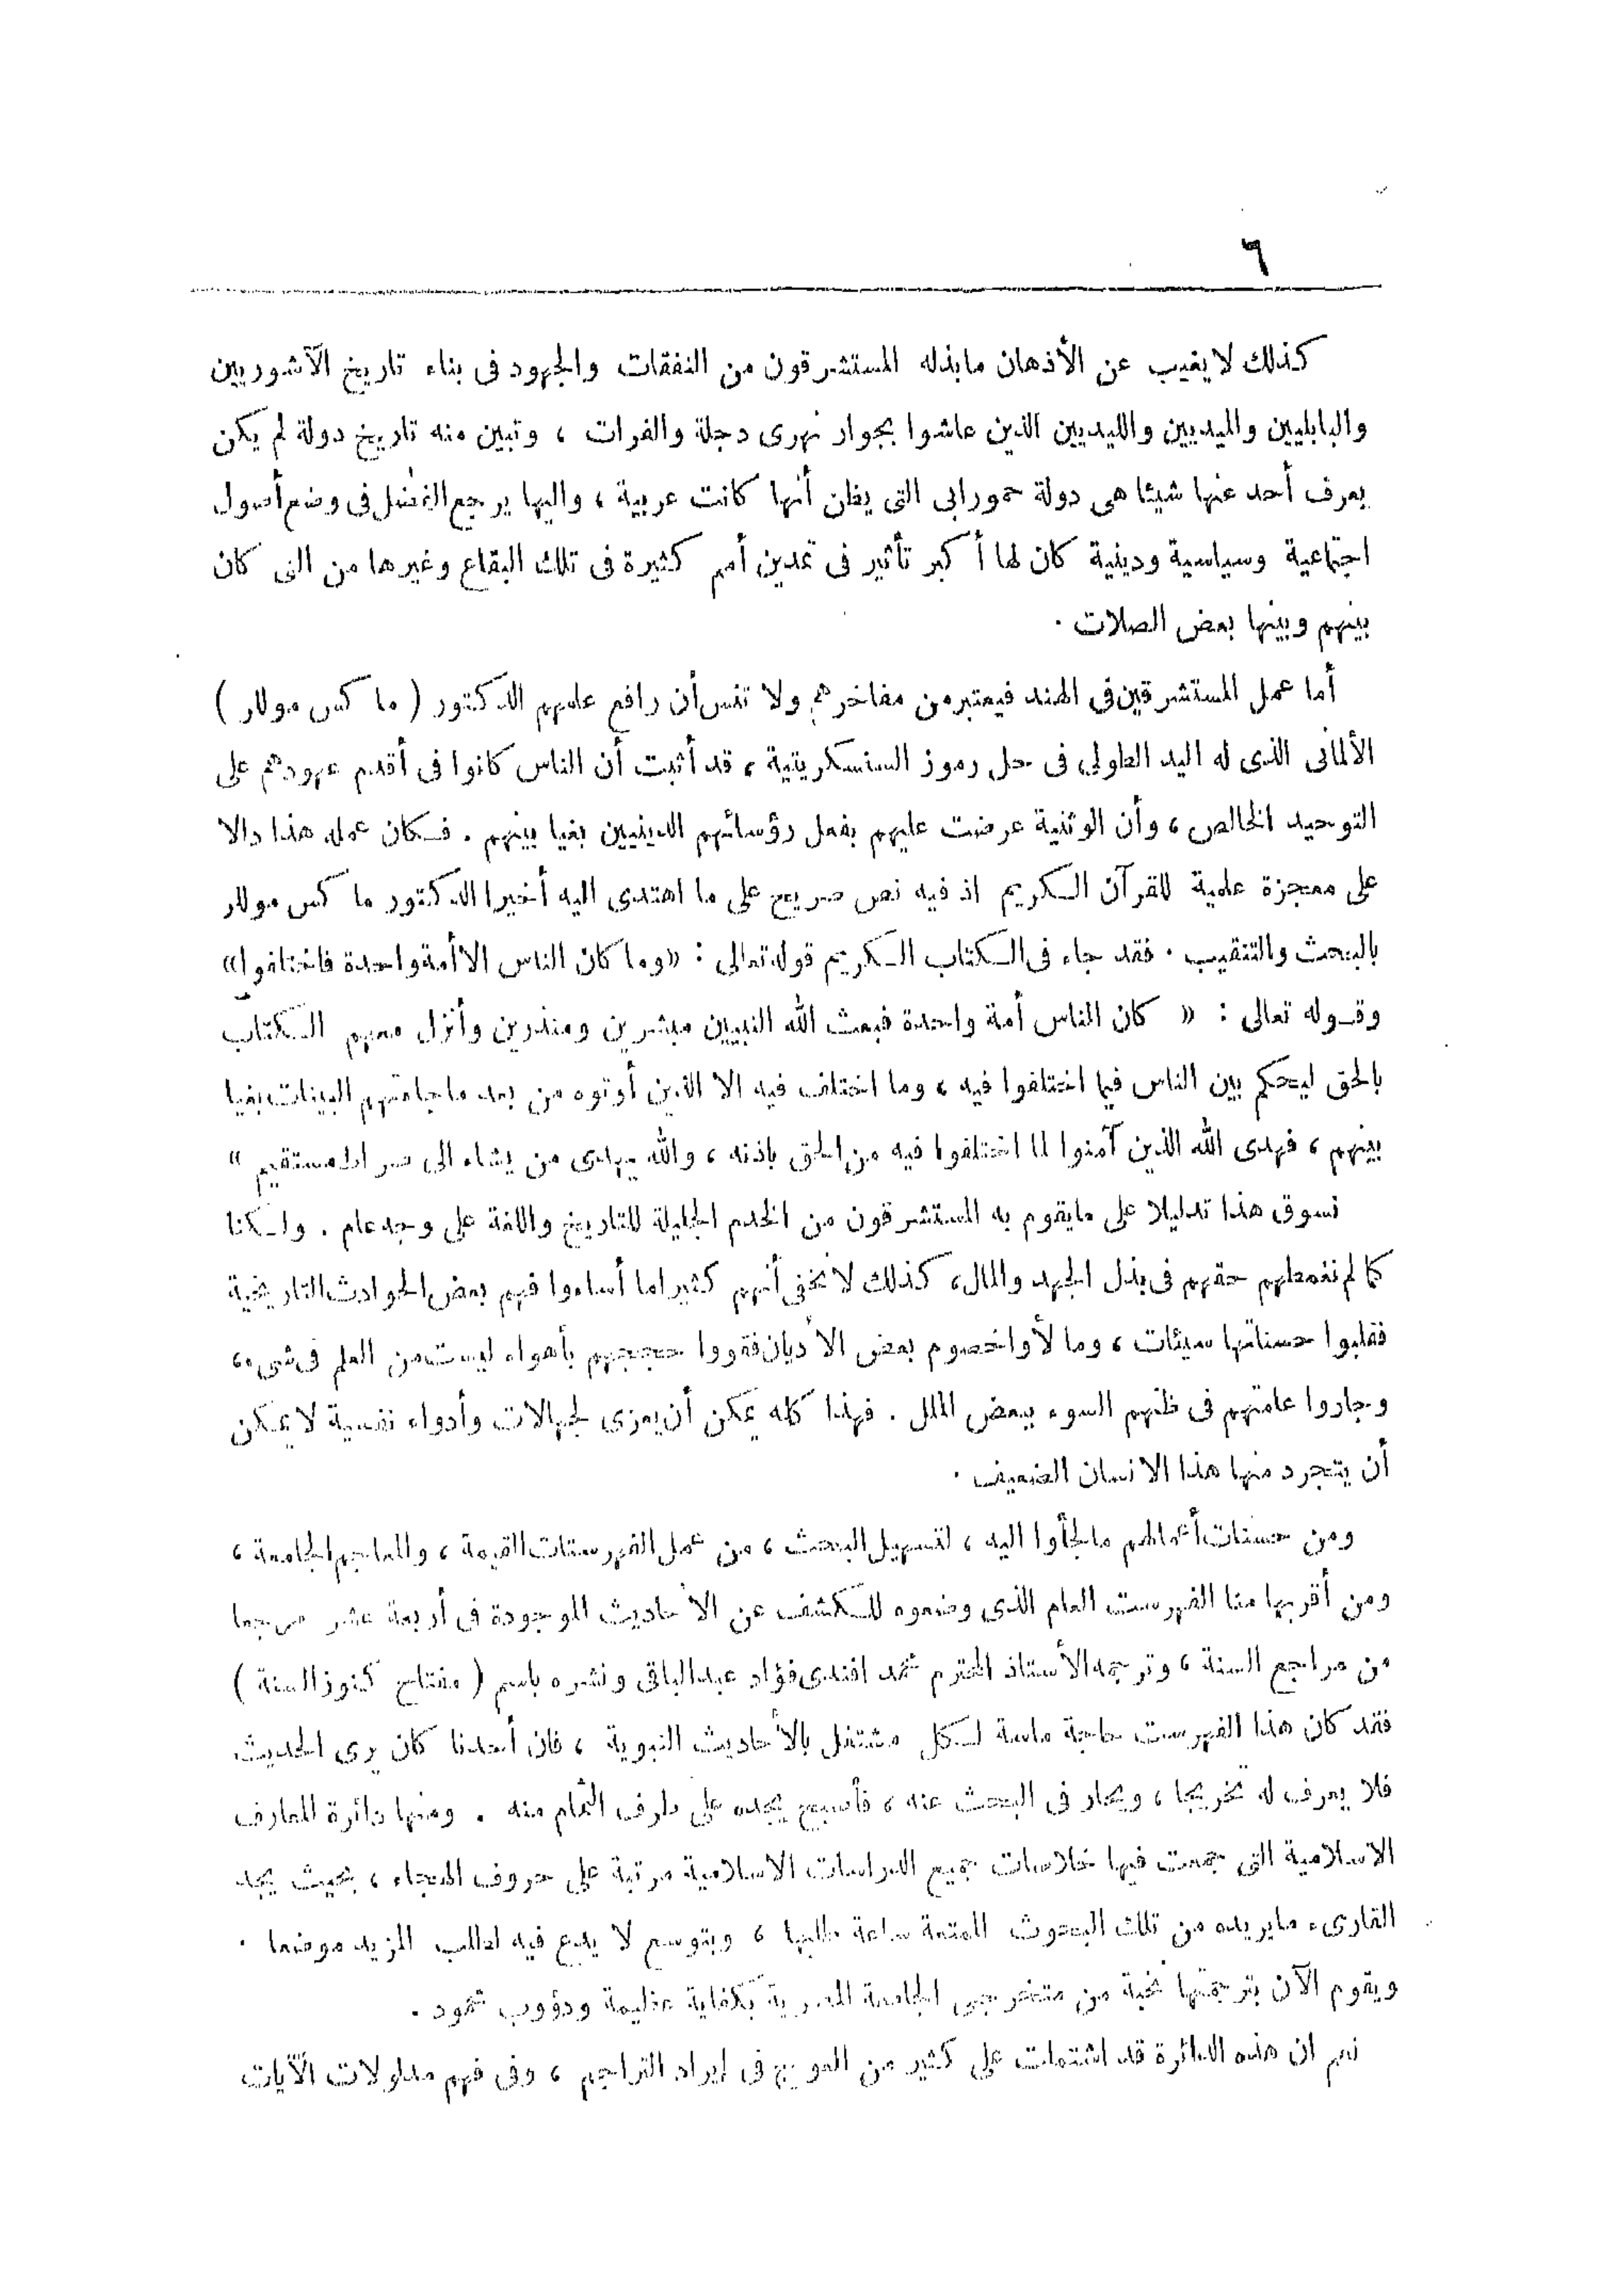 ٦
كذلك لا يغيب عن الأذهان مابذله المستشرقون من النفقات والجهود فى بناء تاريخ الآشوريين
والبابليين والميديين والليديين الذين عاشوا بجوار نهرى دجلة والفرات ، وتبين منه تاريخ دولة لم يكن
يعرف أحد عنها شيئا هى دولة حمورابى التى يظن أنها كانت عربية ، واليها يرجع الفضل فى وضع أصول
اجتماعية وسياسية ودينية كان لها أكبر تأثير فى تمدين أمم كثيرة فى تلك البقاع وغيرها من التى كان
بينهم وبينها بعض الصلات .
أما عمل المستشرقين فى الهند فيعتبر من مفاخرهم ولا تنس أن رافع علمهم الدكتور ( ماكس مولار )
الألمانى الذى له اليد الطولى فى حل رموز السنسكريتية ، قد أثبت أن الناس كانوا فى أقدم عهودهم على
التوحيد الخالص ، وأن الوثنية عرضت عليهم بفعل رؤسائهم الدينيين بغيا بينهم . فكان عمله هذا دالا
على معجزة علمية للقرآن الكريم اذ فيه نص صريح على ما اهتدى اليه أخيرا الدكتور ماكس مولار
بالبحث والتنقيب . فقد جاء فى الكتاب الكريم قوله تعالى : «وما كان الناس الا أمة واحدة فاختلفوا»
وقوله تعالى : « كان الناس أمة واحدة فبعث الله النبيين مبشرين ومنذرين وأنزل معهم الكتاب
بالحق ليحكم بين الناس فيما اختلفوا فيه ، وما اختلف فيه الا الذين أوتوه من بعد ماجاءتهم البينات بغيا
بينهم ، فهدى الله الذين آمنوا لما اختلفوا فيه من الحق باذنه ، والله يهدى من يشاء الى صراط مستقيم »
نسوق هذا تدليلا على مايقوم به المستشرقون من الخدم الجليلة للتاريخ واللغة على وجه عام . ولكنا
كما لم نغمطهم حقهم فى بذل الجهد والمال ، كذلك لا نخفى أنهم كثيرا ما أساءوا فهم بعض الحوادث التاريخية
فقلبوا حسناتها سيئات ، ومالأوا خصوم بعض الأديان فقووا حججهم بأهواء ليست من العلم فى شىء ،
وجاروا عامتهم فى ظنهم السوء ببعض الملل . فهذا كله يمكن أن يعزى لجهالات وأدواء نفسية لا يمكن
أن يتجرد منها هذا الانسان الضعيف .
ومن حسنات أعمالهم مالجأوا اليه ، لتسهيل البحث ، من عمل الفهرستات القيمة ، والمعاجم الجامعة ،
ومن أقربها منا الفهرست العام الذى وضعوه للكشف عن الأحاديث الموجودة فى أربعة عشر مرجعا
من مراجع السنة ، وترجمه الأستاذ المحترم محمد افندى فؤاد عبد الباقى ونشره باسم ( مفتاح كنوز السنة )
فقد كان هذا الفهرست حاجة ماسة لكل مشتغل بالأحاديث النبوية ، فان أحدنا كان يرى الحديث
فلا يعرف له تخريجا ، ويحار فى البحث عنه ، فأصبح يجده على طرف الثمام منه . ومنها دائرة المعارف
الاسلامية التى جمعت فيها خلاصات جميع الدراسات الاسلامية مرتبة على حروف الهجاء ، بحيث يجد
القارىء مايريده من تلك البحوث الممتعة ساعة طلبها ، وبتوسع لا يدع فيه لطالب المزيد موضعا .
ويقوم الآن بترجمتها نخبة من متخرجى الجامعة المصرية بكفاية عظيمة ودؤوب محمود .
نعم ان هذه الدائرة قد اشتملت على كثير من العويج فى إيراد التراجم ، وفى فهم مدلولات الآيات